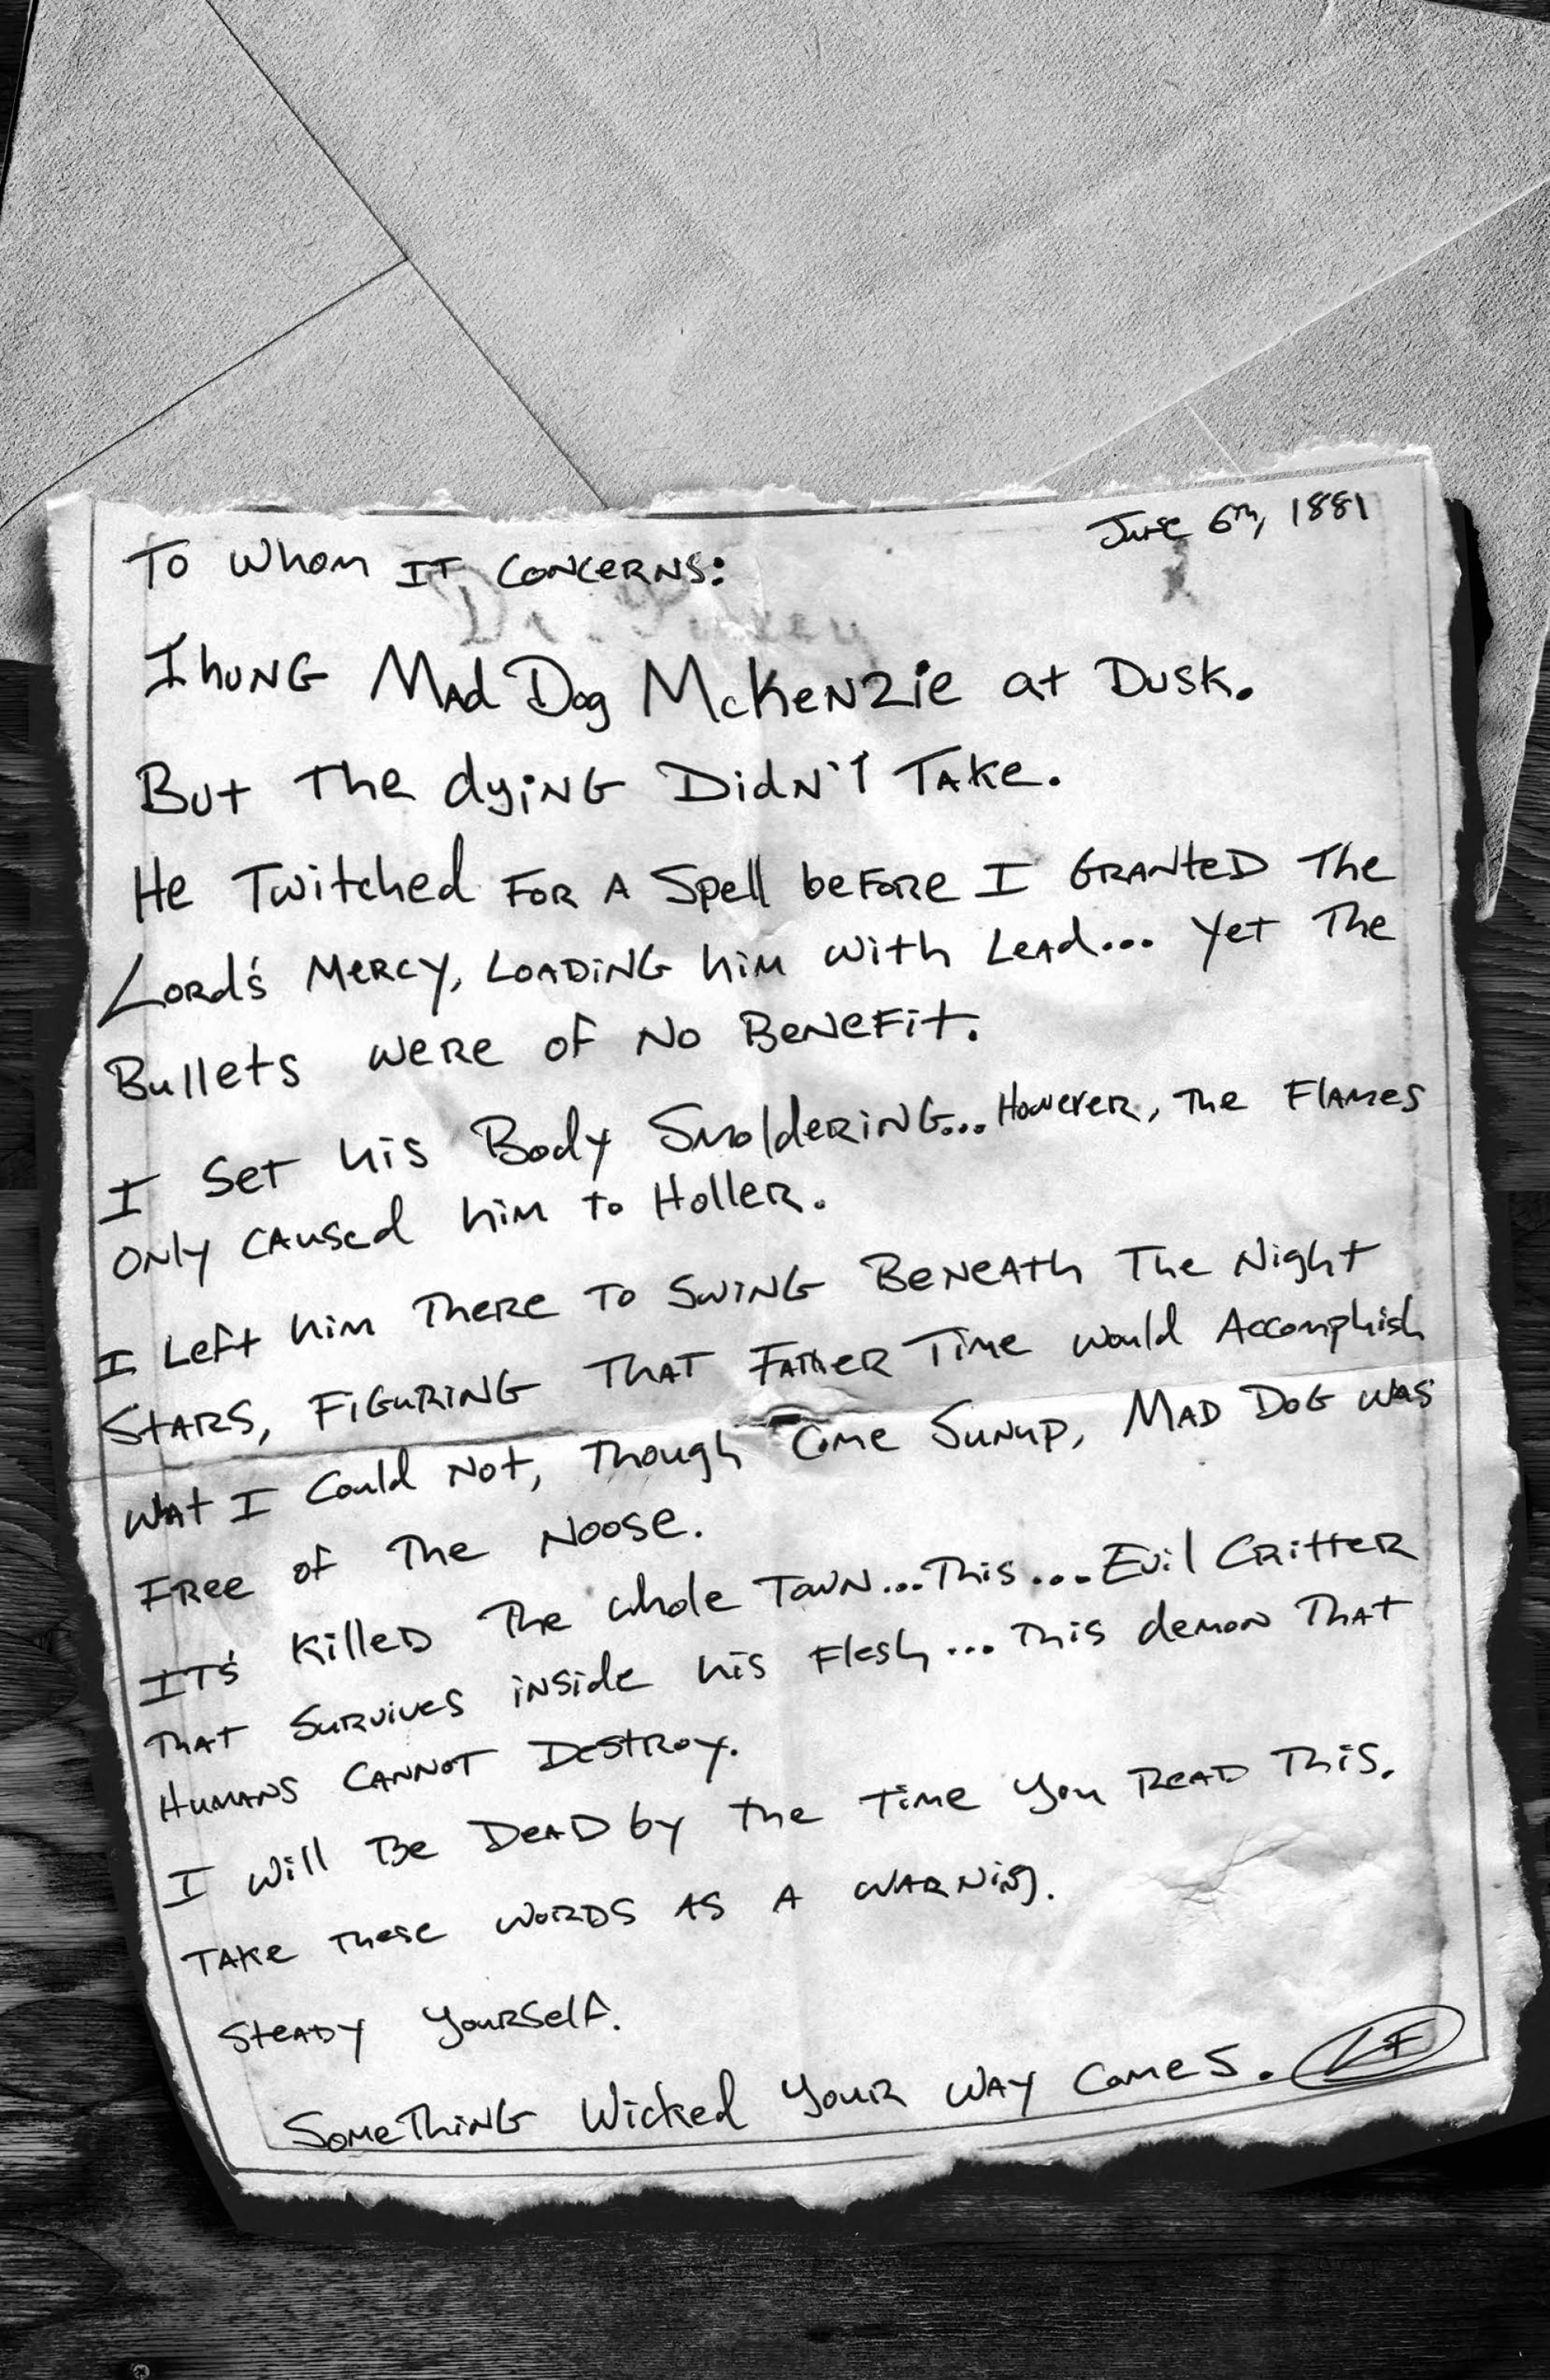 June 6th, 1881
To Whom IT CONCERNS:
I hung Mad Dog McKenzie at Dusk.
But The dying Didn't Take.
He Twitched FOR A Spell beFORE I GRANTED The
LORd's MERCY, LOADING him with Lead... Yet The
Bullets weRE of No BeNeFit.
I Set his Body SmoldeRiNG... HoweveR, The Flames
ONly CAUSed him to HolleR.
I Left him TheRE To SwiNG BeNeAth The Night
StARS, FiGuRiNG ThAT FATheR Time would Accomplish
What I Could Not, Though Come SuNup, MAD DoG was
FRee of The Noose.
IT's killed The whole TowN... This... Evil CRitteR
That SuRvives iNside his Flesh... This demoN ThAt
HumANS CANNOT DestRoy.
I will Be DeAD by the Time You ReAD This.
TAke These woRDS AS A WARNiNg.
SteADY YouRSelf.
SomeThiNG Wicked YouR WAY ComeS. LF